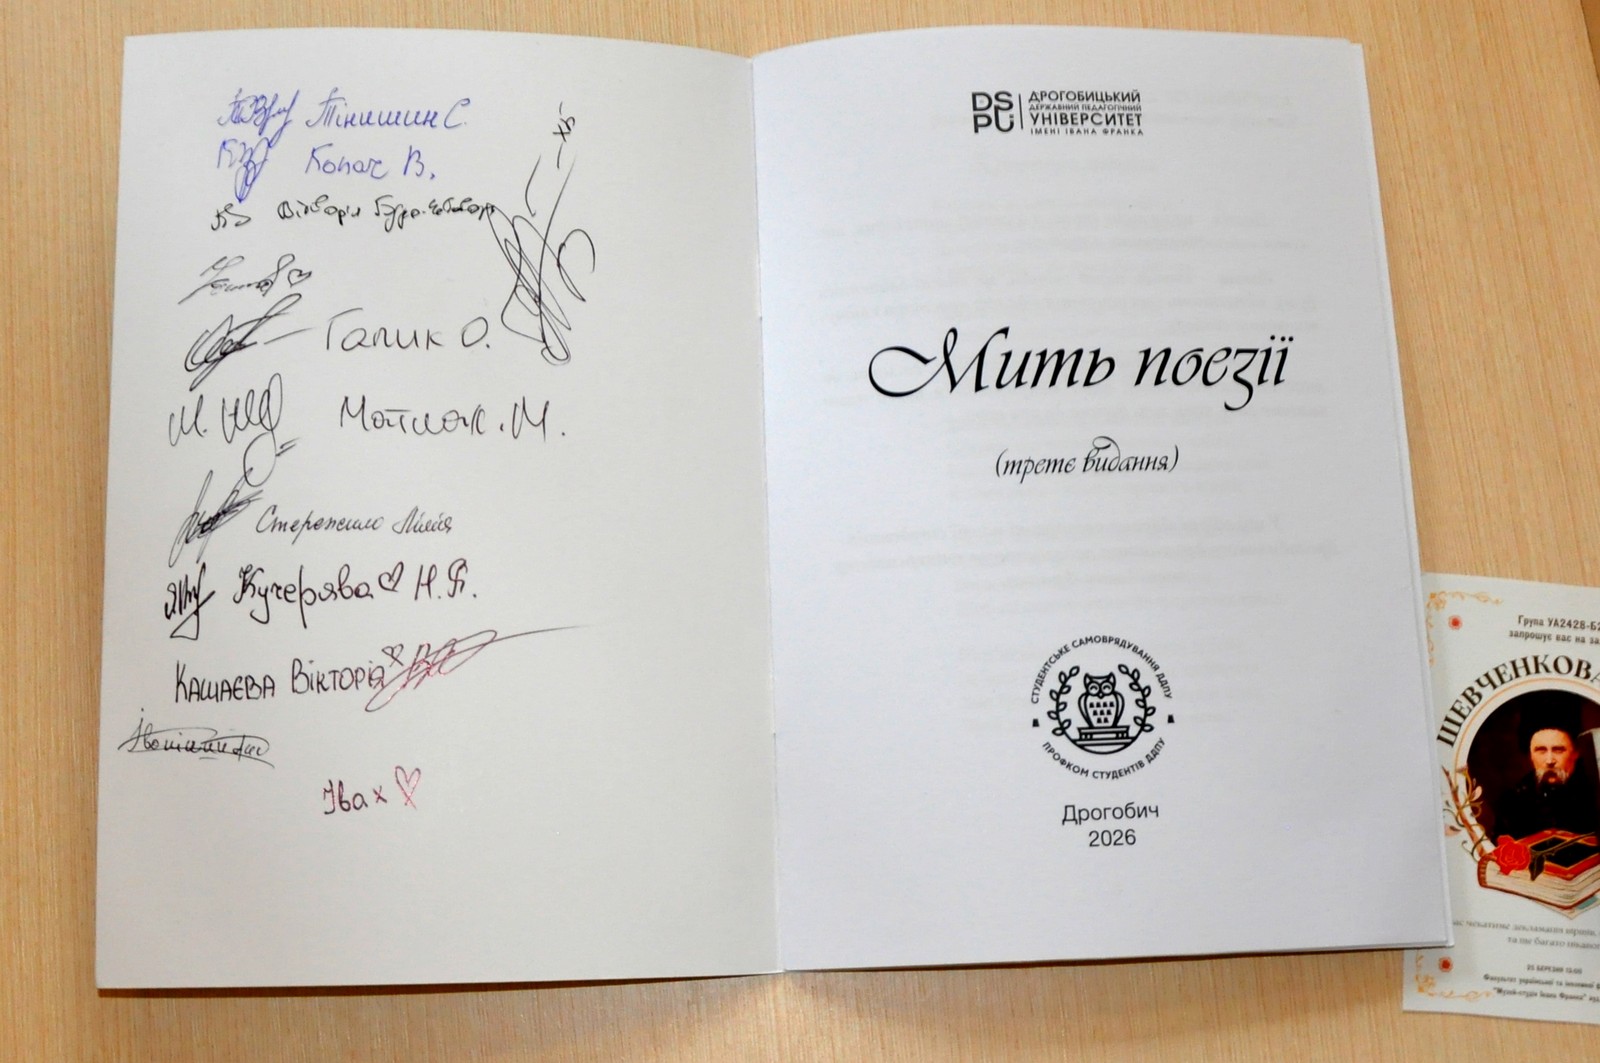 Тінишин С.
Копач В.
Вікторія
Галик О.
Матлак. М.
Стережило Лілія
Кучерява Н. Я.
КАШАЄВА ВІКТОРІЯ
Іва х
DS PU
ДРОГОБИЦЬКИЙ
ДЕРЖАВНИЙ ПЕДАГОГІЧНИЙ
УНІВЕРСИТЕТ
ІМЕНІ ІВАНА ФРАНКА
Мить поезії
(третє видання)
СТУДЕНТСЬКЕ САМОВРЯДУВАННЯ ДДПУ
ПРОФКОМ СТУДЕНТІВ ДДПУ
Дрогобич
2026
Група УА2428-Б
запрошує вас на
ШЕВЧЕНКОВА
вас чекатиме декламація віршів,
та ще багато цікавого
25 БЕРЕЗНЯ 13:00
Факультет української та іноземної
"Музей-студія Івана Франка" ауд.